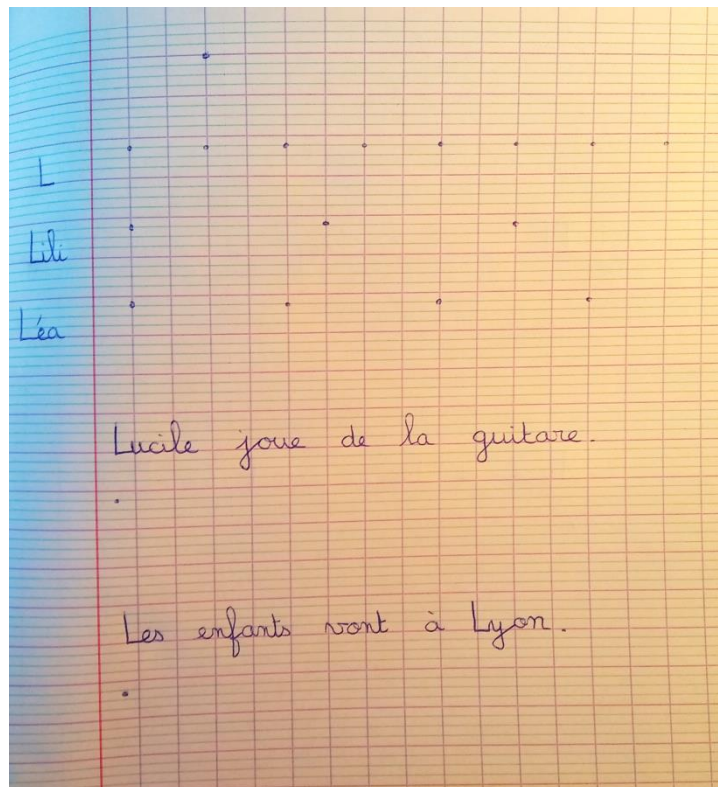 L
Lili
Léa
Lucile joue de la guitare.
Les enfants vont à Lyon.